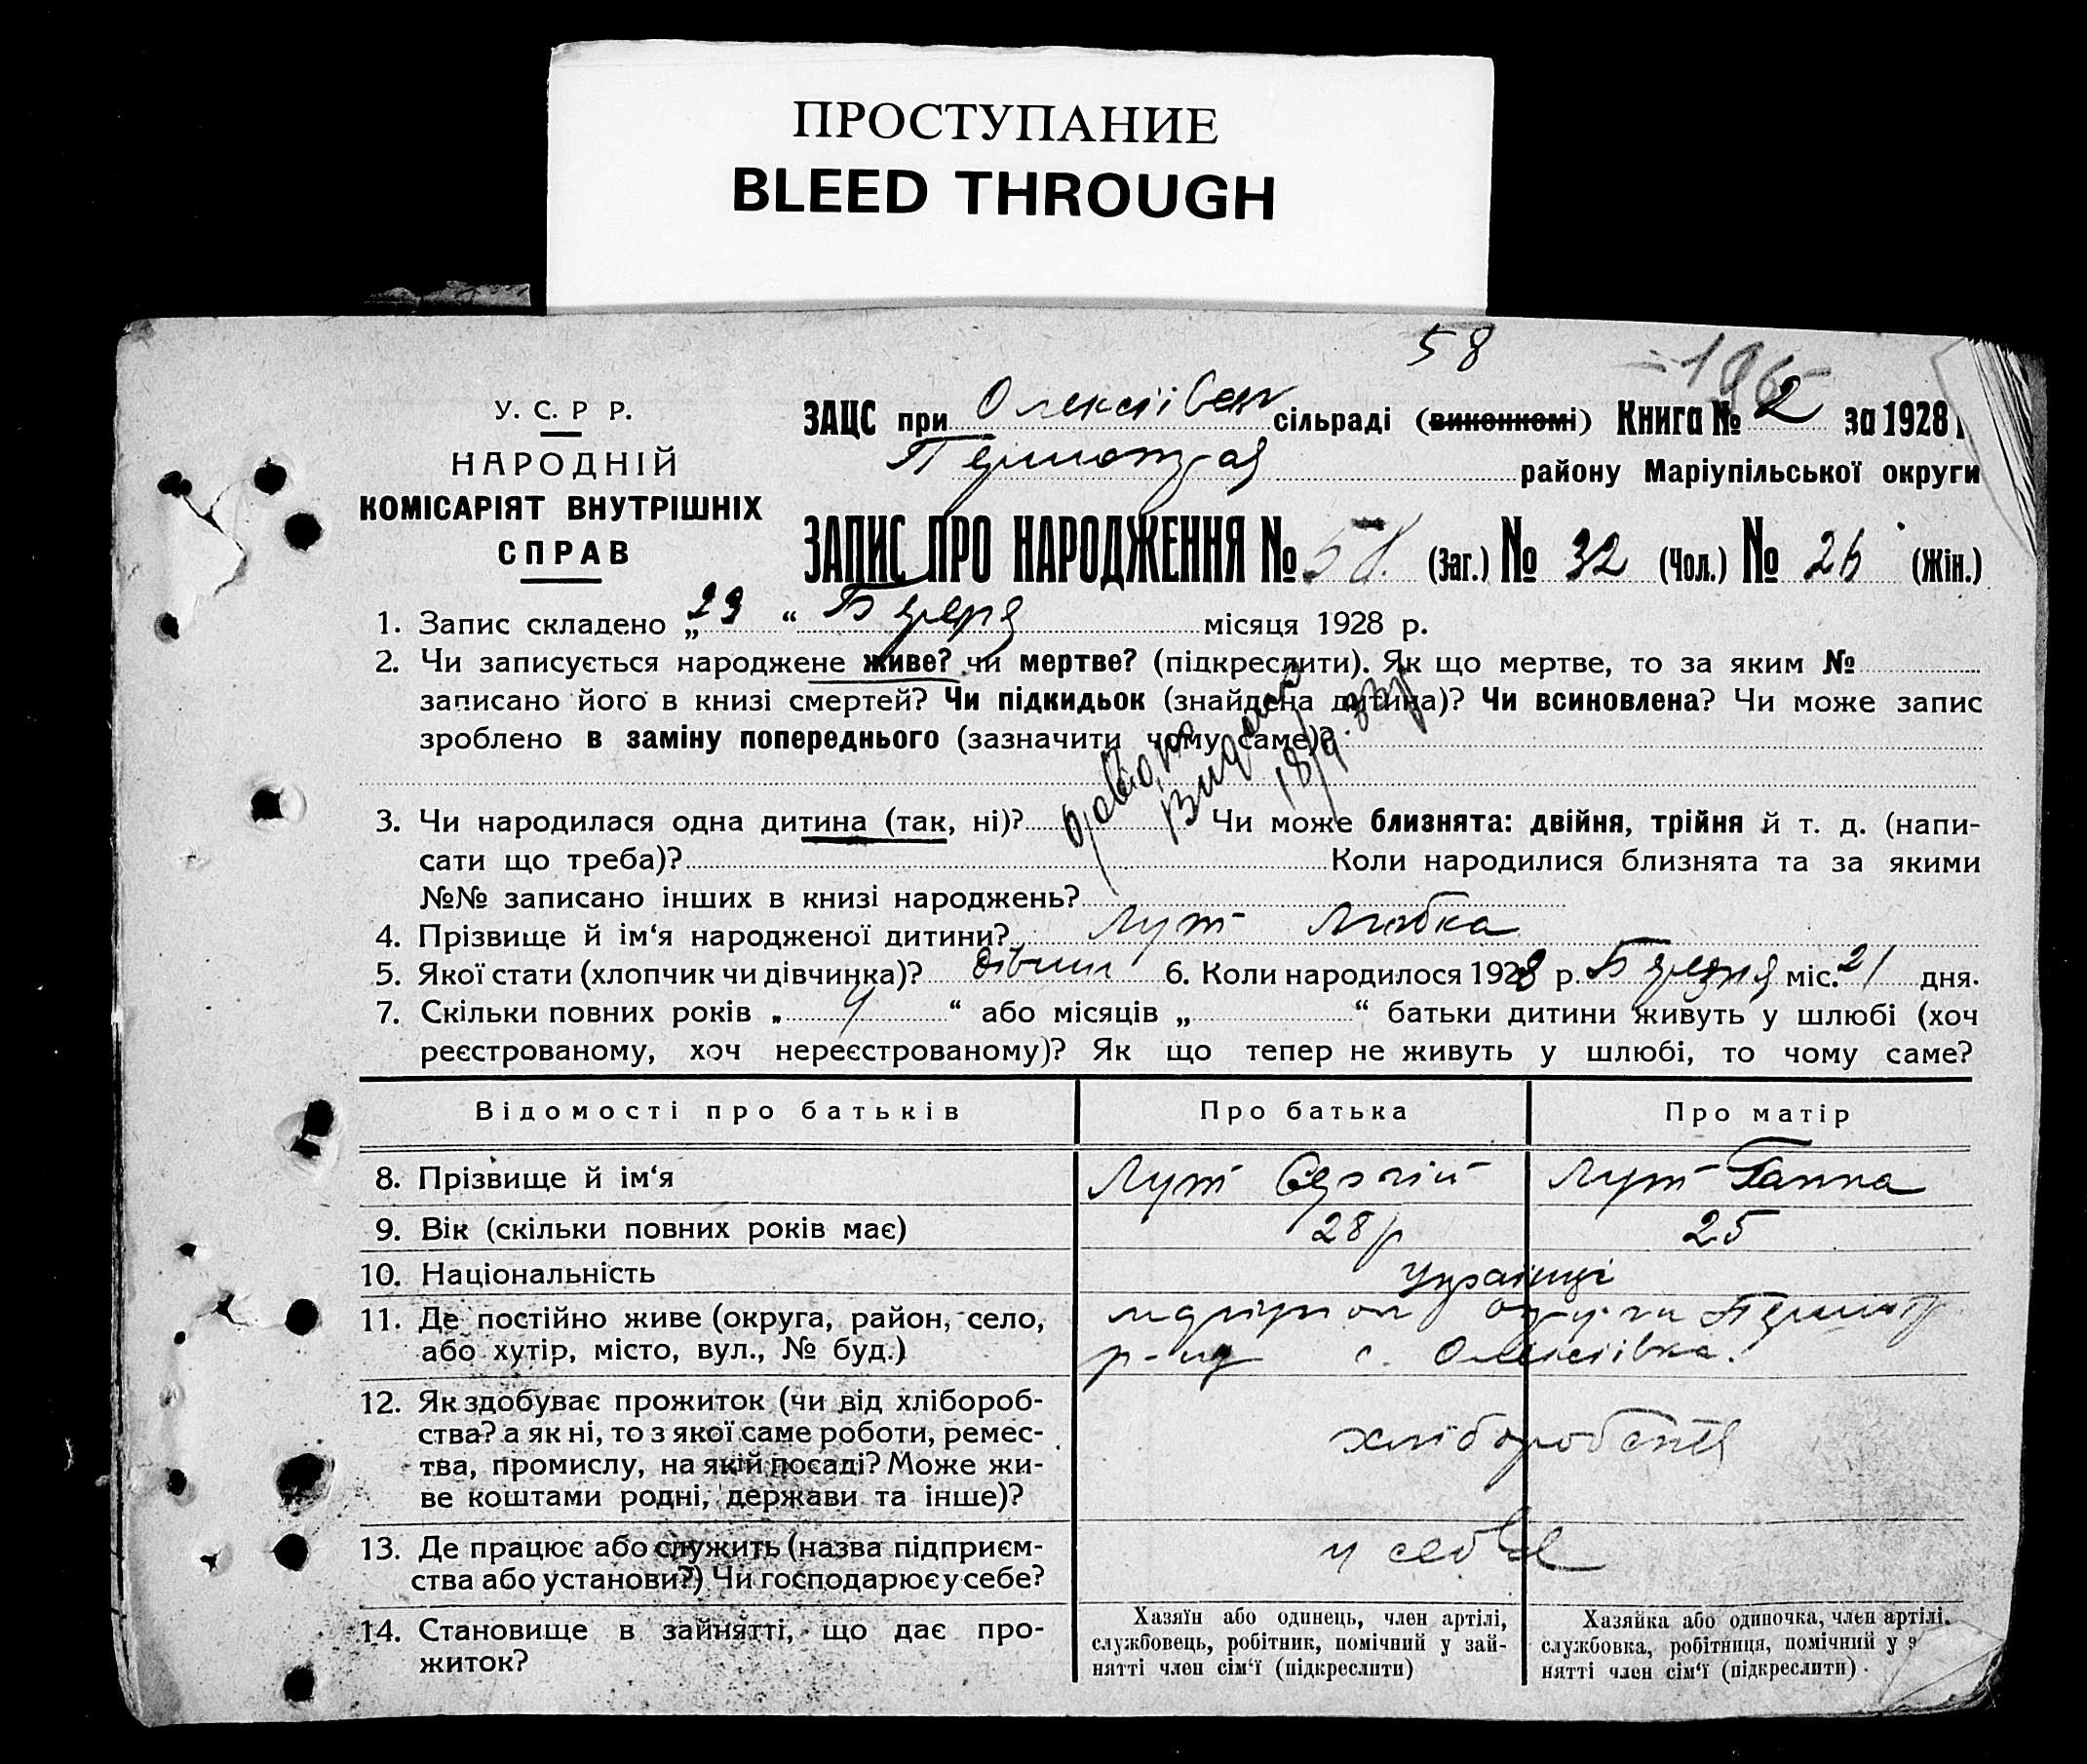 ПРОСТУПАНИЕ
BLEED THROUGH
58
У. С. Р Р.
НАРОДНІЙ
КОМІСАРІЯТ ВНУТРІШНІХ
СПРАВ
ЗАЦС при Олексіївськ сільраді (виконкомі) Книга № 2 за 1928
району Маріупільської округи
ЗАПИС ПРО НАРОДЖЕННЯ № 58 (Заг.) № 32 (Чол.) № 26 (Жін.)
1. Запис складено „23“ Березня місяця 1928 р.
2. Чи записується народжене живе? чи мертве? (підкреслити). Як що мертве, то за яким №
записано його в книзі смертей? Чи підкидьок (знайдена дитина)? Чи всиновлена? Чи може запис
зроблено в заміну попереднього (зазначити чому саме)?
3. Чи народилася одна дитина (так, ні)? Чи може близнята: двійня, трійня й т. д. (напи-
сати що треба)? Коли народилися близнята та за якими
№№ записано інших в книзі народжень?
4. Прізвище й ім‘я народженої дитини? Лут Любка
5. Якої стати (хлопчик чи дівчинка)? дівчин 6. Коли народилося 1928 р. Березня міс. 21 дня.
7. Скільки повних років „ “ або місяців „ “ батьки дитини живуть у шлюбі (хоч
реєстрованому, хоч нереєстрованому)? Як що тепер не живуть у шлюбі, то чому саме?
Відомості про батьків Про батька Про матір
8. Прізвище й ім‘я Лут Сергій Лут Ганна
9. Вік (скільки повних років має) 28 р 25
10. Національність Українці
11. Де постійно живе (округа, район, село,
або хутір, місто, вул., № буд.)
р-ну с. Олексіївка.
12. Як здобуває прожиток (чи від хлібороб-
ства? а як ні, то з якої саме роботи, ремес-
тва, промислу, на якій посаді? Може жи-
ве коштами родні, держави та інше)?
хліборобства
13. Де працює або служить (назва підприєм-
ства або установи?) Чи господарює у себе?
у себе
14. Становище в зайнятті, що дає про-
житок?
Хазяїн або одинець, член артілі,
службовець, робітник, помічний у зай-
нятті член сім‘ї (підкреслити)
Хазяйка або одиночка, член артілі.
службовка, робітниця, помічний у з
нятті член сім‘ї (підкреслити)
довідка
видана